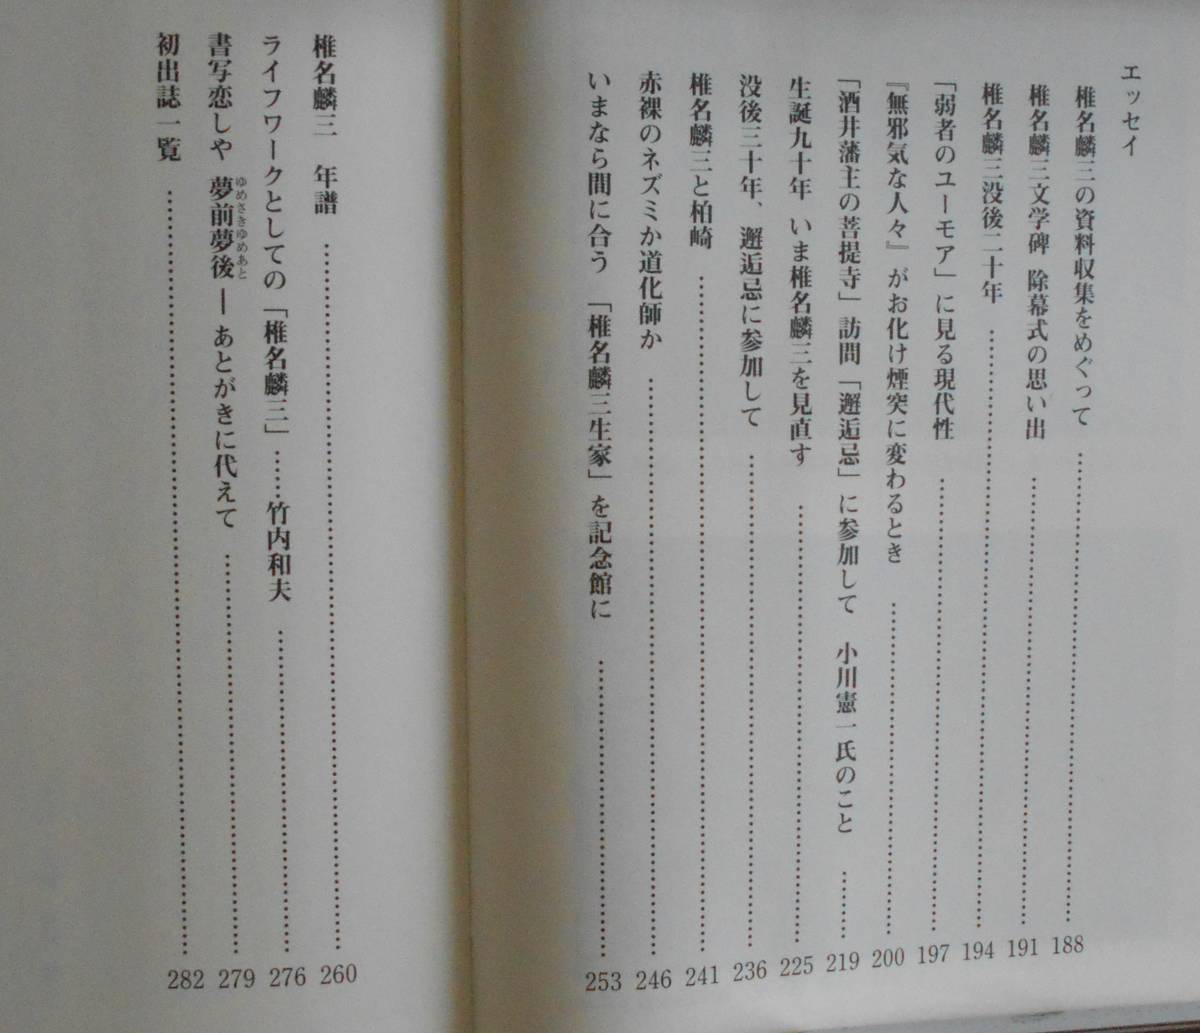 エッセイ
椎名麟三の資料収集をめぐって ………… 188
椎名麟三文学碑 除幕式の思い出 ………… 191
椎名麟三没後二十年 ………… 194
「弱者のユーモア」に見る現代性 ………… 197
『無邪気な人々』がお化け煙突に変わるとき ………… 200
「酒井藩主の菩提寺」訪問「邂逅忌」に参加して 小川憲一氏のこと …… 219
生誕九十年 いま椎名麟三を見直す ………… 225
没後三十年、邂逅忌に参加して ………… 236
椎名麟三と柏崎 ………… 241
赤裸のネズミか道化師か ………… 246
いまなら間に合う 「椎名麟三生家」を記念館に ………… 253
椎名麟三 年譜 ………… 260
ライフワークとしての「椎名麟三」 …… 竹内和夫 ………… 276
書写恋しや 夢前夢後ーあとがきに代えて ………… 279
ゆめさきゆめあと
初出誌一覧 ………… 282